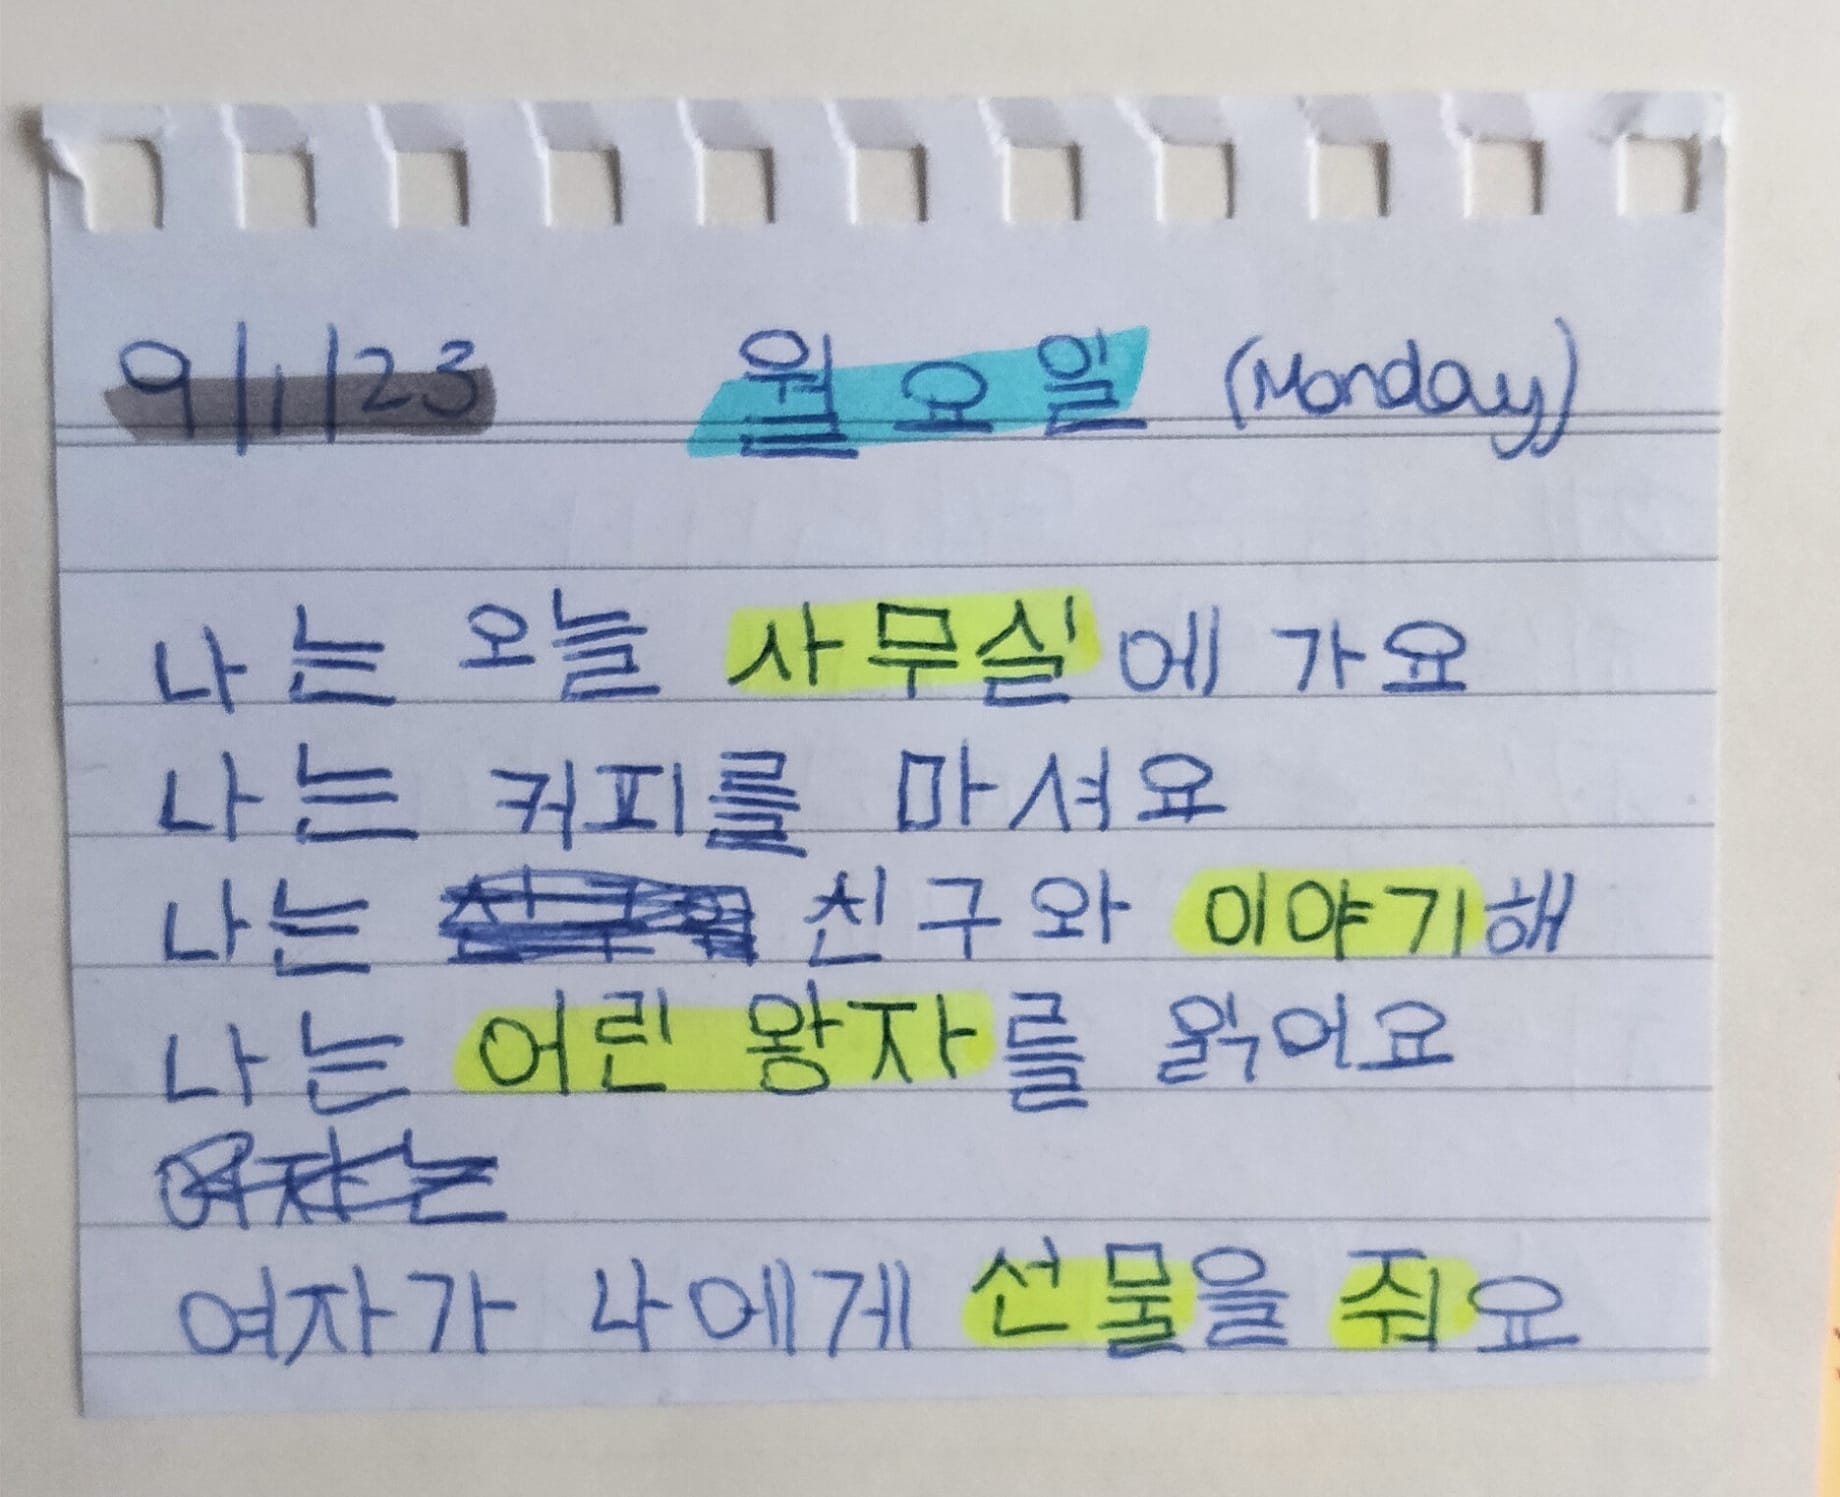 9/1/23 월요일 (Monday)
나는 오늘 사무실에 가요
나는 커피를 마셔요
나는 친구와 이야기해
나는 어린 왕자를 읽어요
여자는
여자가 나에게 선물을 줘요